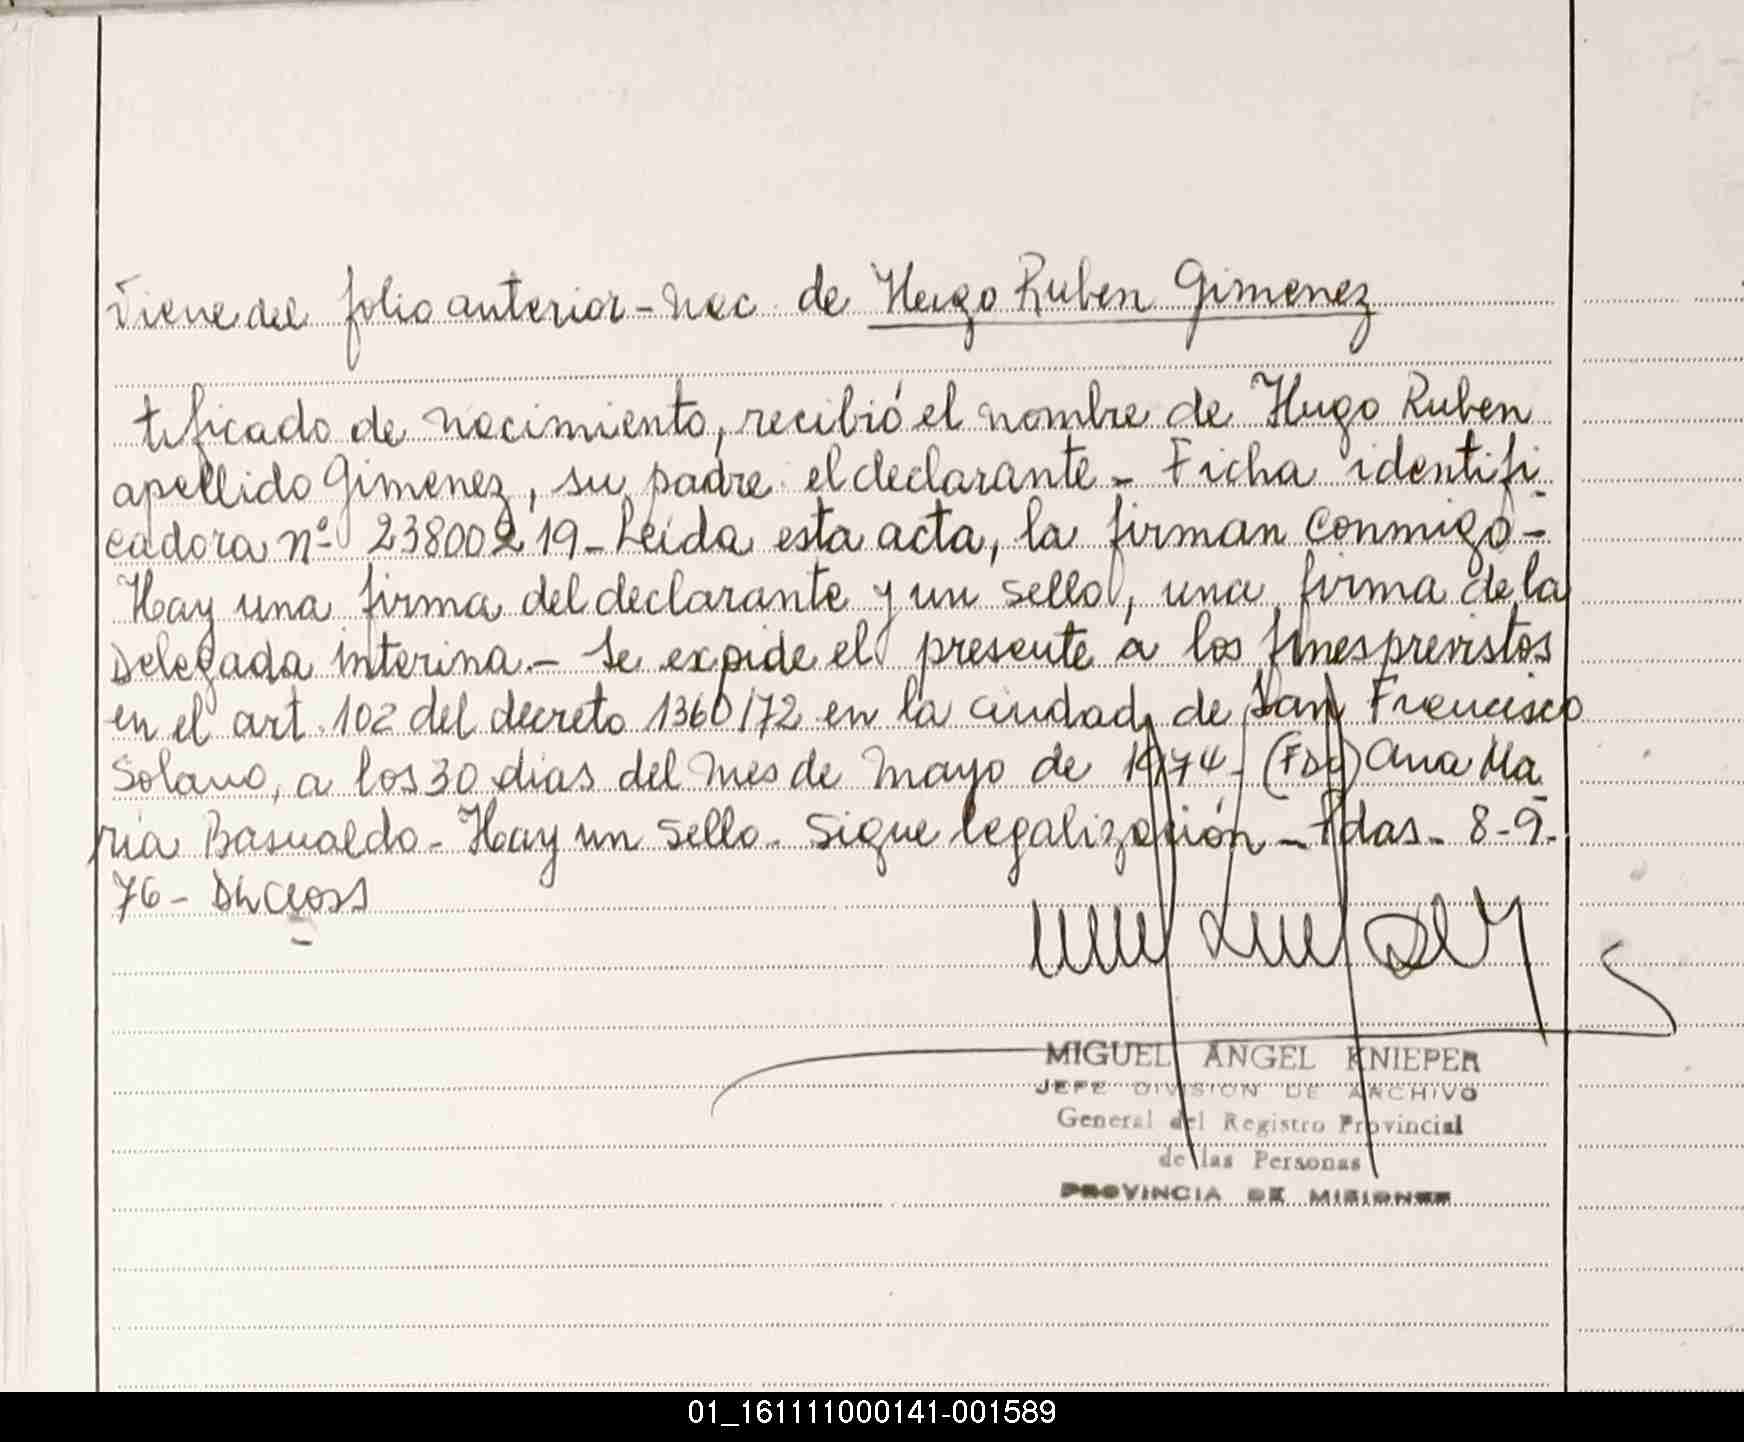 Viene del folio anterior - Nac. de Hugo Ruben Gimenez
tificado de nacimiento, recibió el nombre de Hugo Ruben
apellido Gimenez, su padre el declarante - Ficha identifi
cadora nº 23800219 - Leida esta acta, la firman conmigo -
Hay una firma del declarante y un sello, una firma de la
Delegada interina. - Se expide el presente a los fines previstos
en el art. 102 del decreto 1360/72 en la ciudad de San Francisco
Solano, a los 30 dias del mes de mayo de 1974 - (FDo) Ana Ma
ria Basualdo - Hay un sello - Sigue legalización - Pdas - 8-9-
76 -
MIGUEL ANGEL KNIEPER
JEFE DIVISION DE ARCHIVO
General del Registro Provincial
de las Personas
PROVINCIA DE MISIONES
01_161111000141-001589